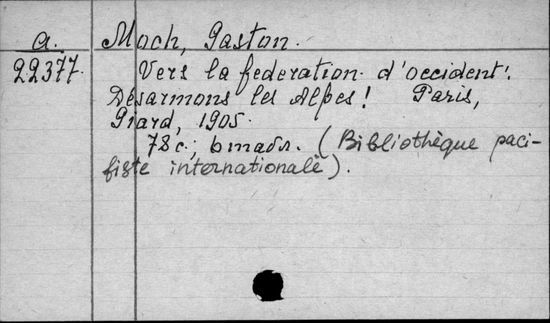 a. Moch, Gaston.
22377. Vers la federation d'occident.
Désarmons les Alpes! Paris,
Giard, 1905.
78 c.; 6 madr. (Bibliothèque paci-
fiste internationale).